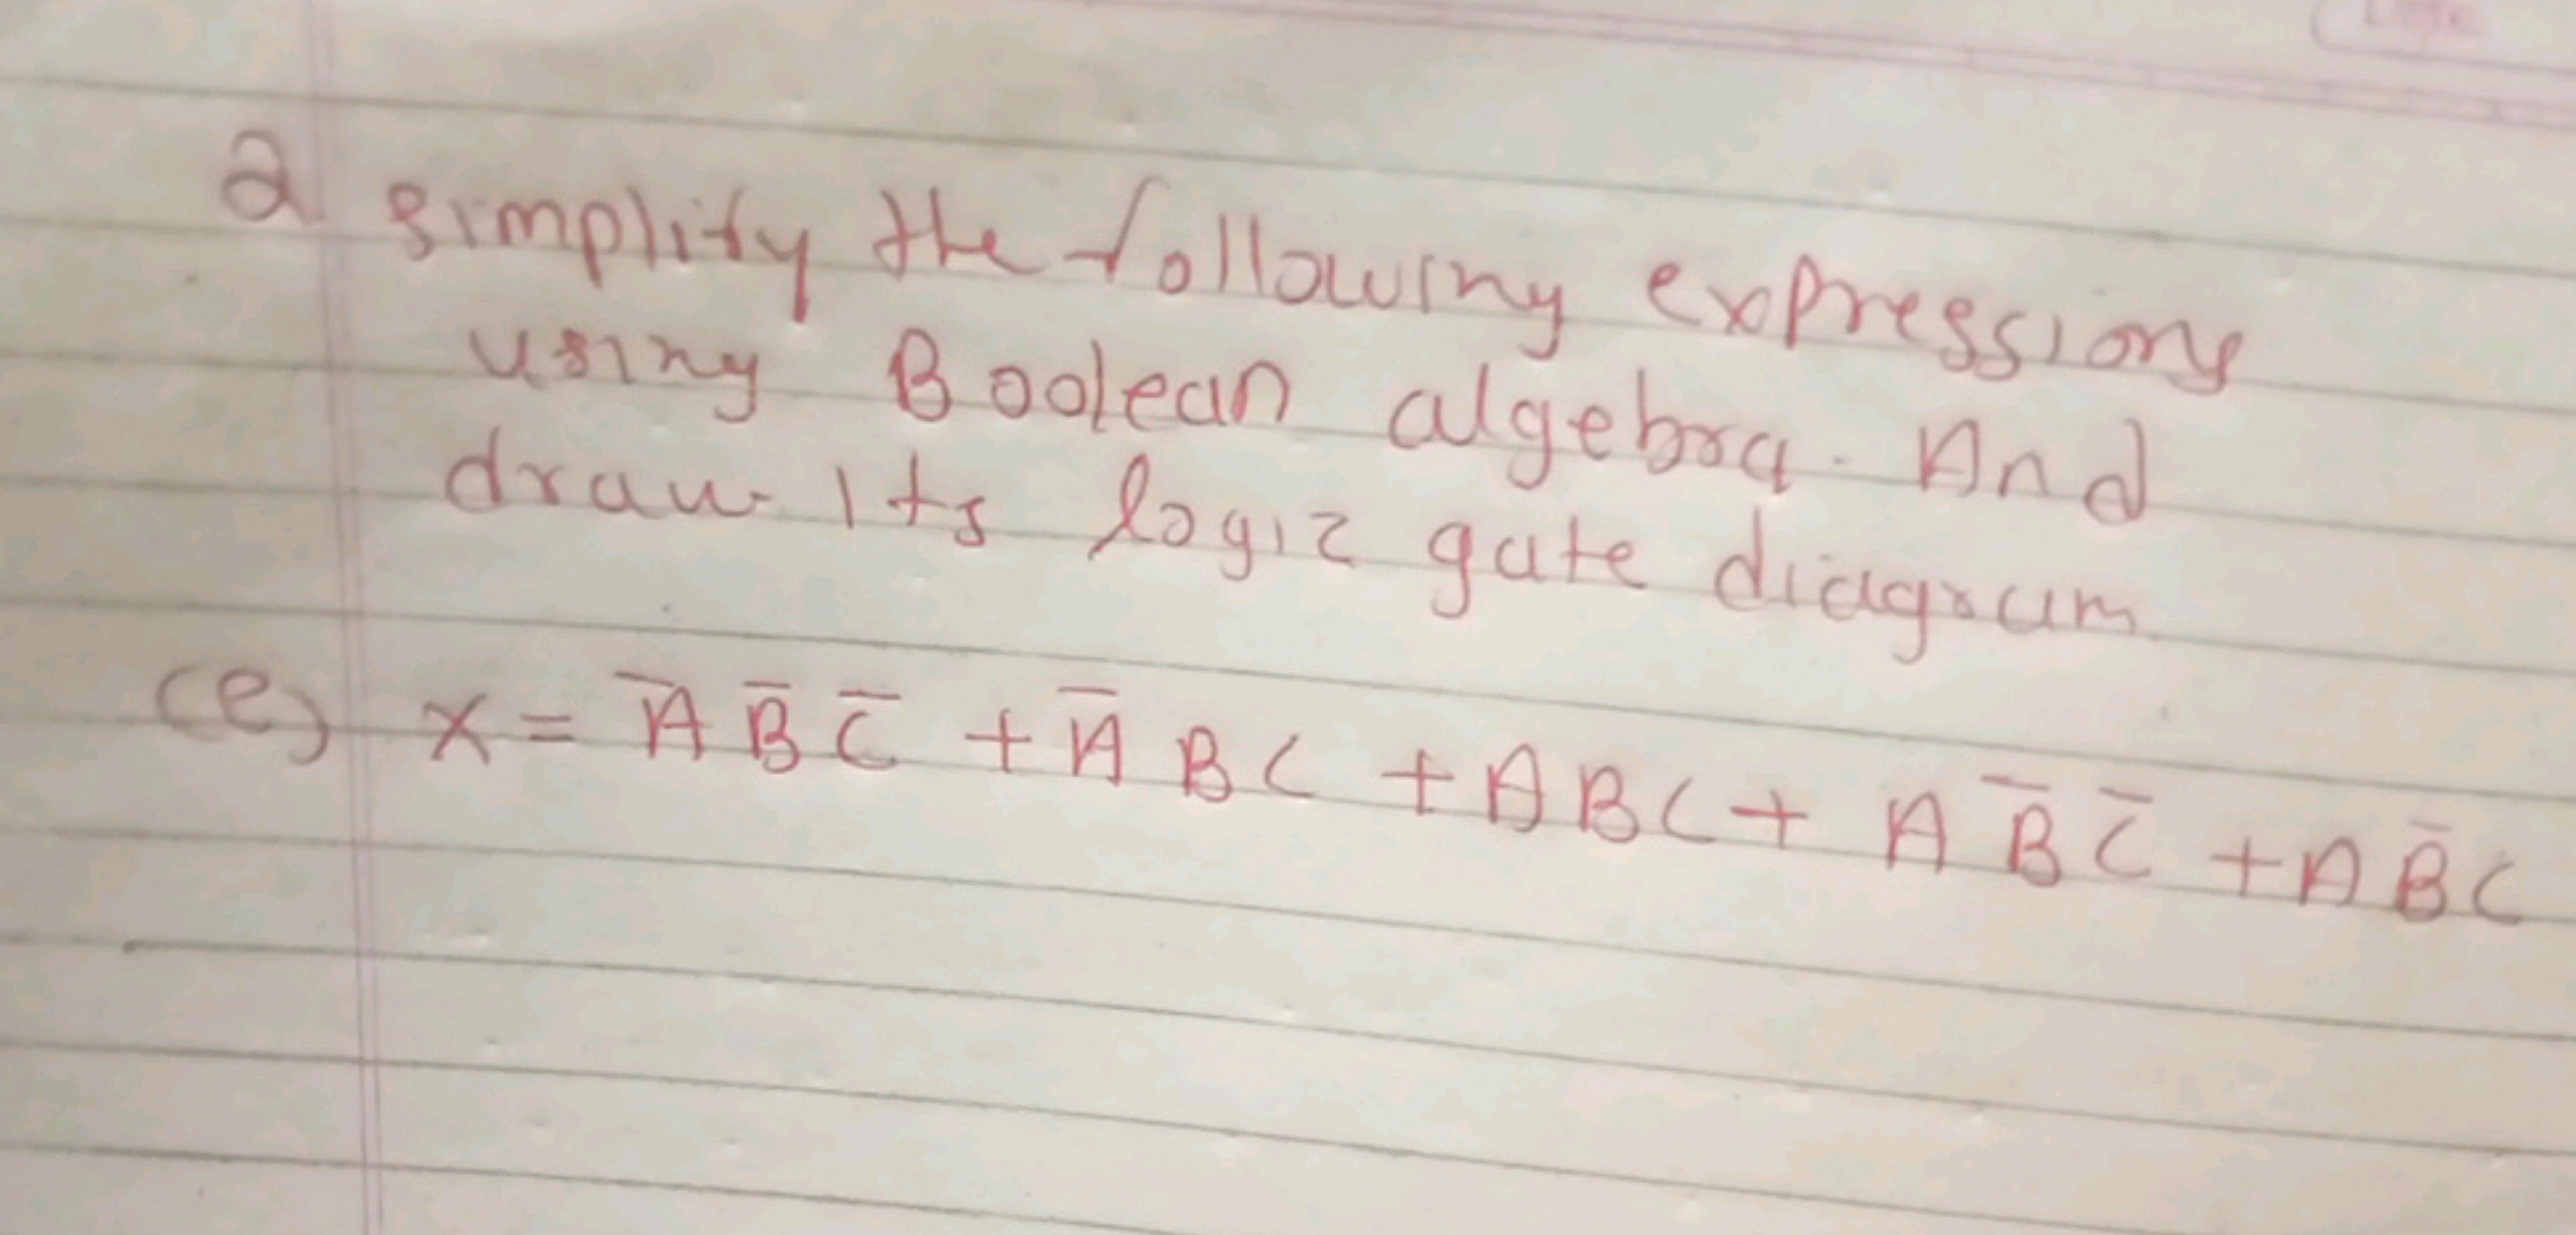 2 simplify the following expressions
using Boolean algebra. And
draw its logic gate diagram
(e) x = A̅ B̅ C̅ + A̅ B C + A B C + A B̅ C̅ + A B̅ C